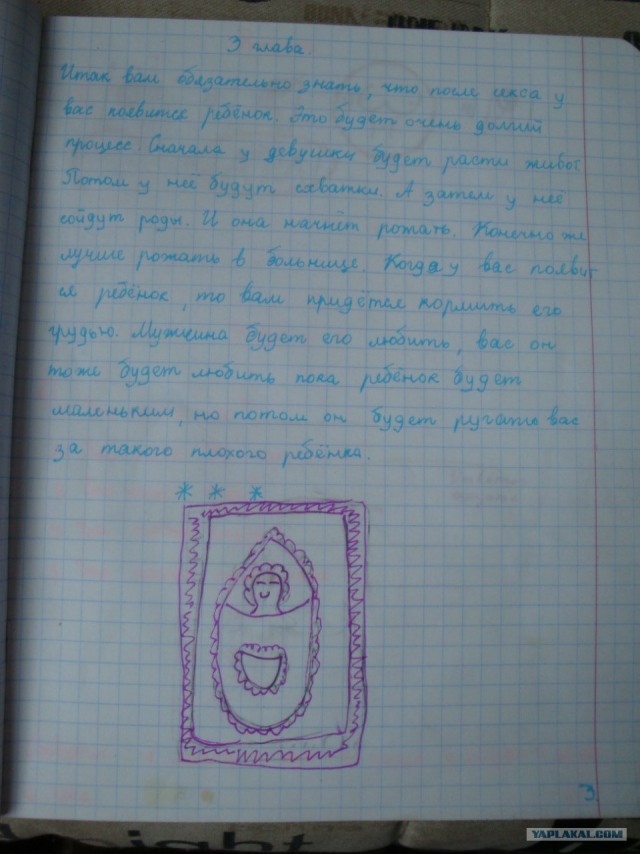 3 глава.
Итак вам обязательно знать, что после секса у
вас появится ребёнок. Это будет очень долгий
процесс. Сначала у девушки будет расти живот
Потом у неё будут схватки. А затем у неё
сойдут роды. И она начнёт рожать. Конечно же
лучше рожать в больнице. Когда у вас появит
ся ребёнок, то вам придётся кормить его
грудью. Мужчина будет его любить, вас он
тоже будет любить пока ребёнок будет
маленьким, но потом он будет ругать вас
за такого плохого ребёнка.
* * *
3
YAPLAKAL.COM